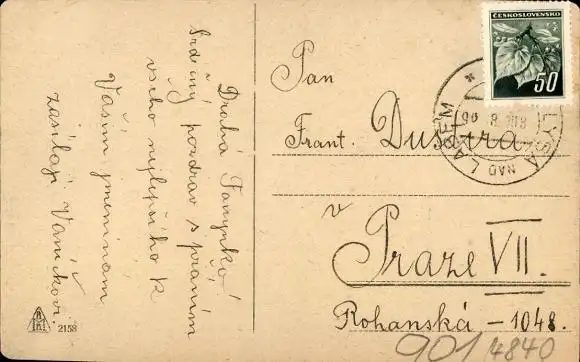 Drahá Fanynko!
Srdečný pozdrav s přáním
všeho nejlepšího k
Vašim jmeninám
zasílají Vaníčkovi.
2158
Pan
Frant. Dusura
v
Praze VII.
Rohanská - 1048.
901 4840
ČESKOSLOVENSKO
50
LYSÁ NAD LABEM